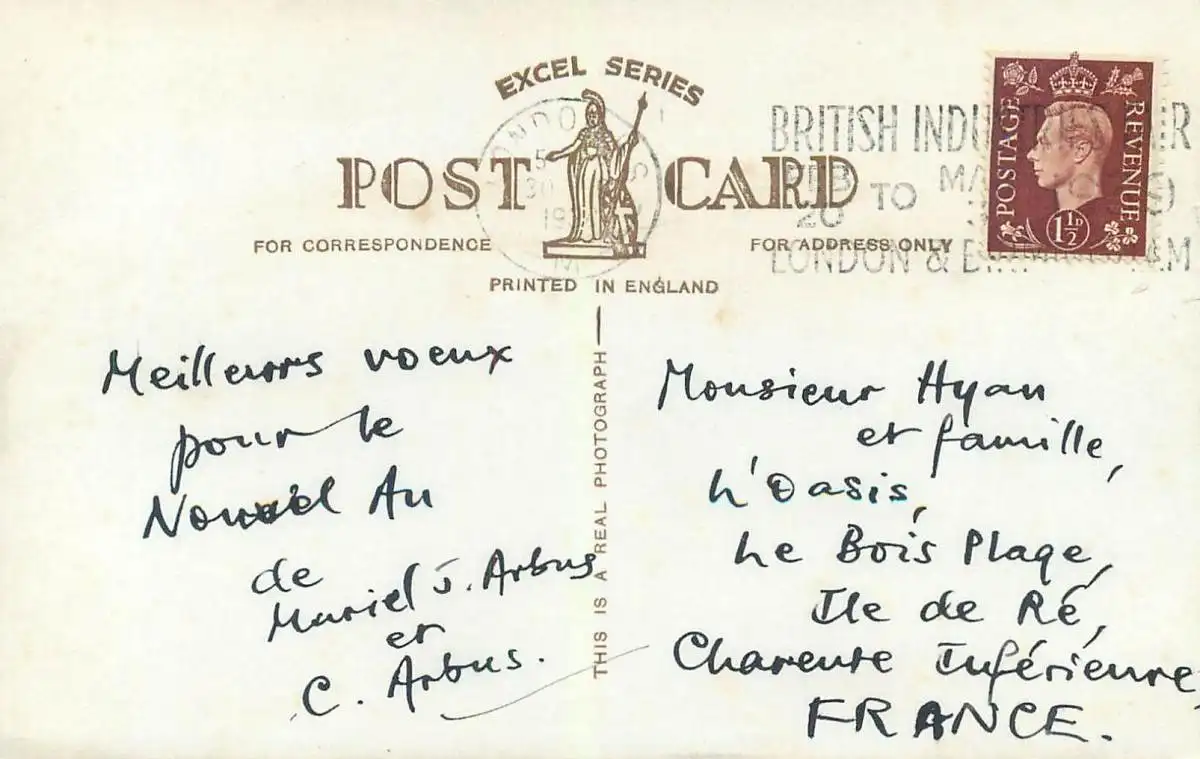 EXCEL SERIES
POST CARD
FOR CORRESPONDENCE
FOR ADDRESS ONLY
PRINTED IN ENGLAND
THIS IS A REAL PHOTOGRAPH
BRITISH
TO
20
LONDON &
POSTAGE
REVENUE
1½D
Meilleurs voeux
pour le
Nouvel An
de
Mariel J. Arbus
et
C. Arbus.
Monsieur Hyan
et famille,
L'Oasis,
Le Bois Plage,
Ile de Ré,
Charente Inférieure,
FRANCE.